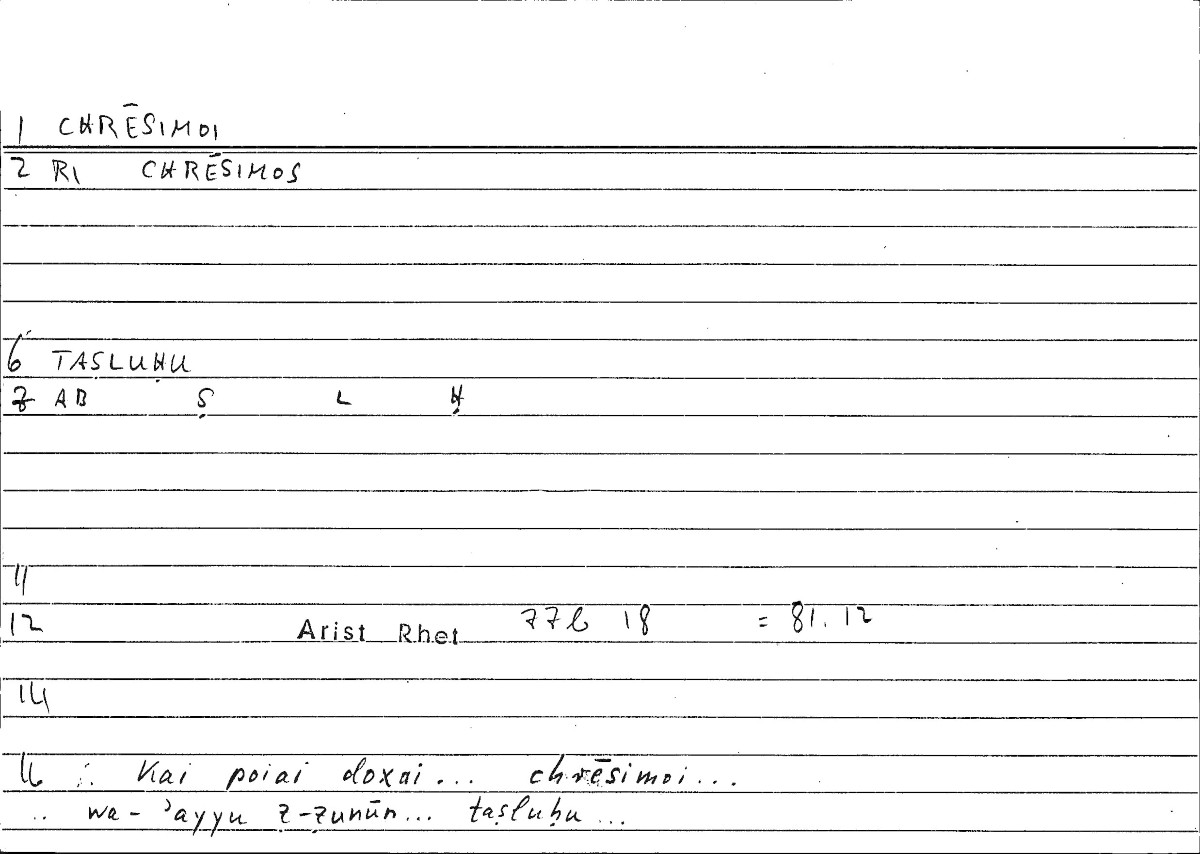 1 CHRĒSIMOI
2 RI CHRĒSIMOS
6 TAṢLUḤU
7 AB Ṣ L Ḥ
11
12 Arist Rhet 77b 18 = 81.12
14
16 ∴ Kai poiai doxai... chrēsimoi...
.. wa-ʾayyu ẓ-ẓunūn... taṣluḥu...